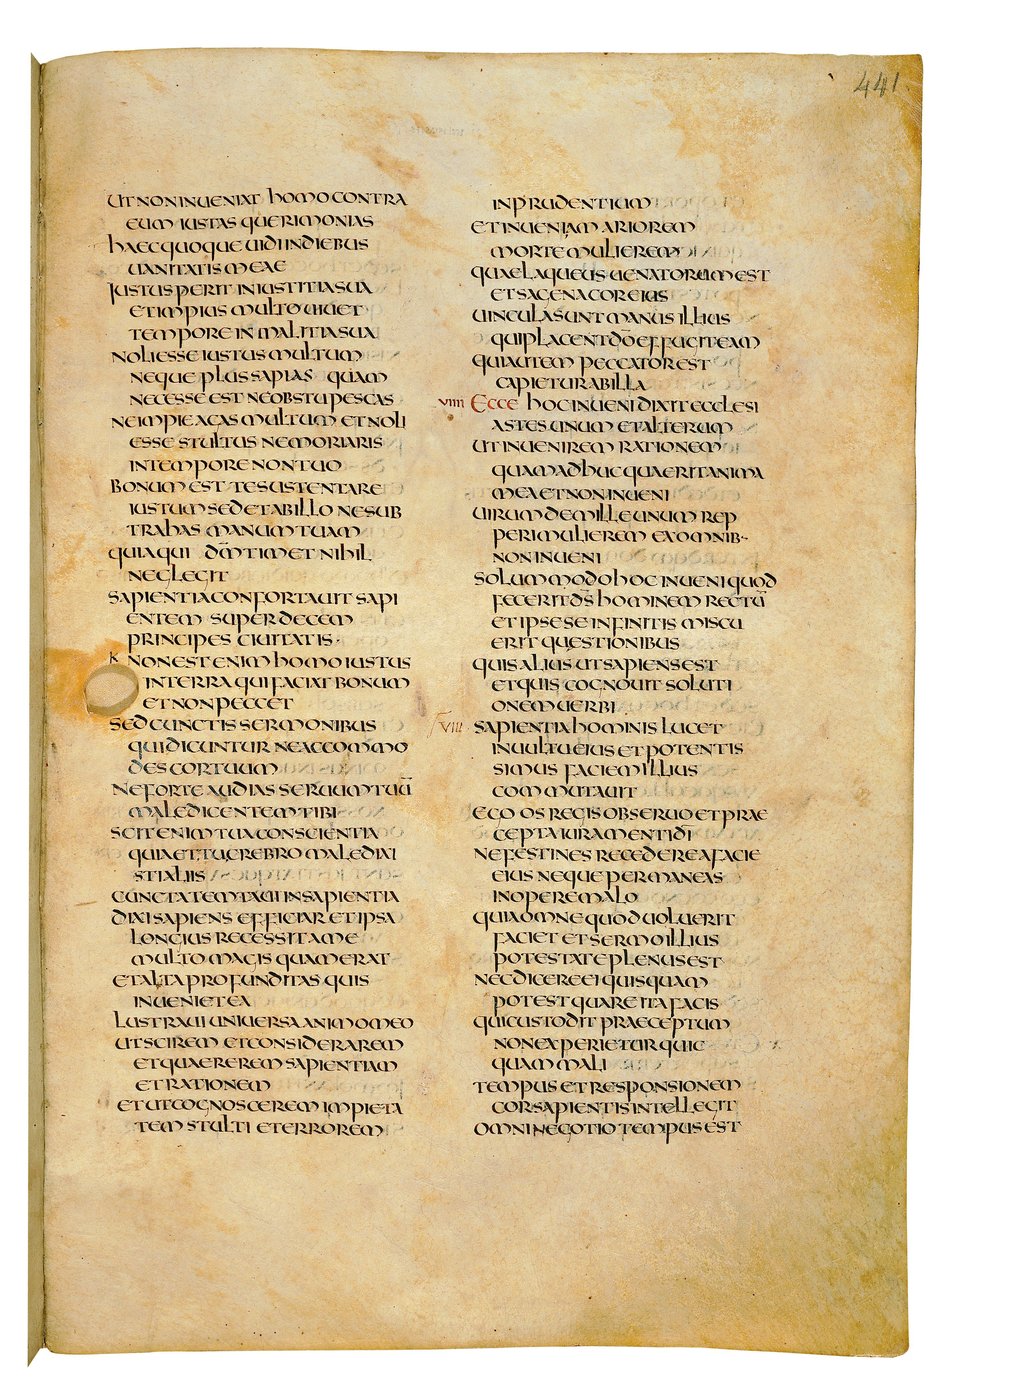 441
UT NON INUENIAT HOMO CONTRA
EUM IUSTAS QUERIMONIAS
HAEC QUOQUE UIDI IN DIEBUS
UANITATIS MEAE
IUSTUS PERIT IN IUSTITIA SUA
ET IMPIUS MULTO UIUET
TEMPORE IN MALITIA SUA
NOLI ESSE IUSTUS MULTUM
NEQUE PLUS SAPIAS QUAM
NECESSE EST NE OBSTUPESCAS
NE IMPIE AGAS MULTUM ET NOLI
ESSE STULTUS NE MORIARIS
IN TEMPORE NON TUO
BONUM EST TE SUSTENTARE
IUSTUM SED ET AB ILLO NE SUB
TRAHAS MANUM TUAM
QUIA QUI DM̄ TIMET NIHIL
NEGLEGIT
SAPIENTIA CONFORTAUIT SAPI
ENTEM SUPER DECEM
PRINCIPES CIUITATIS·
K NON EST ENIM HOMO IUSTUS
IN TERRA QUI FACIAT BONUM
ET NON PECCET
SED CUNCTIS SERMONIBUS
QUI DICUNTUR NE ACCOMMO
DES COR TUUM
NE FORTE AUDIAS SERUUM TUŪ
MALEDICENTEM TIBI
SCIT ENIM TUA CONSCIENTIA
QUIA ET TU CREBRO MALEDIXI
STI ALIIS
CUNCTA TEMTAUI IN SAPIENTIA
DIXI SAPIENS EFFICIAR ET IPSA
LONGIUS RECESSIT A ME
MULTO MAGIS QUAM ERAT
ET ALTA PROFUNDITAS QUIS
INUENIET EA
LUSTRAUI UNIUERSA ANIMO MEO
UT SCIREM ET CONSIDERAREM
ET QUAEREREM SAPIENTIAM
ET RATIONEM
ET UT COGNOSCEREM IMPIETA
TEM STULTI ET ERROREM
INPRUDENTIUM
ET INUENI AMARIOREM
MORTE MULIEREM
QUAE LAQUEUS UENATORUM EST
ET SAGENA COR EIUS
UINCULA SUNT MANUS ILLIUS
QUI PLACENT DŌ EFFUGIT EAM
QUI AUTEM PECCATOR EST
CAPIETUR AB ILLA
VIIII ECCE HOC INUENI DIXIT ECCLESI
ASTES UNUM ET ALTERUM
UT INUENIREM RATIONEM
QUAM ADHUC QUAERIT ANIMA
MEA ET NON INUENI
UIRUM DE MILLE UNUM REP
PERI MULIEREM EX OMNIB·
NON INUENI
SOLUMMODO HOC INUENI QUOD
FECERIT DS̄ HOMINEM RECTŪ
ET IPSE SE INFINITIS MISCU
ERIT QUESTIONIBUS
QUIS ALIUS UT SAPIENS EST
ET QUIS COGNOUIT SOLUTI
ONEM UERBI
VIII SAPIENTIA HOMINIS LUCET
IN UULTU EIUS ET POTENTIS
SIMUS FACIEM ILLIUS
COMMUTAUIT
EGO OS REGIS OBSERUO ET PRAE
CEPTA IURAMENTI DĪ
NE FESTINES RECEDERE A FACIE
EIUS NEQUE PERMANEAS
IN OPERE MALO
QUIA OMNE QUOD UOLUERIT
FACIET ET SERMO ILLIUS
POTESTATE PLENUS EST
NEC DICERE EI QUISQUAM
POTEST QUARE ITA FACIS
QUI CUSTODIT PRAECEPTUM
NON EXPERIETUR QUIC
QUAM MALI
TEMPUS ET RESPONSIONEM
COR SAPIENTIS INTELLEGIT
OMNI NEGOTIO TEMPUS EST